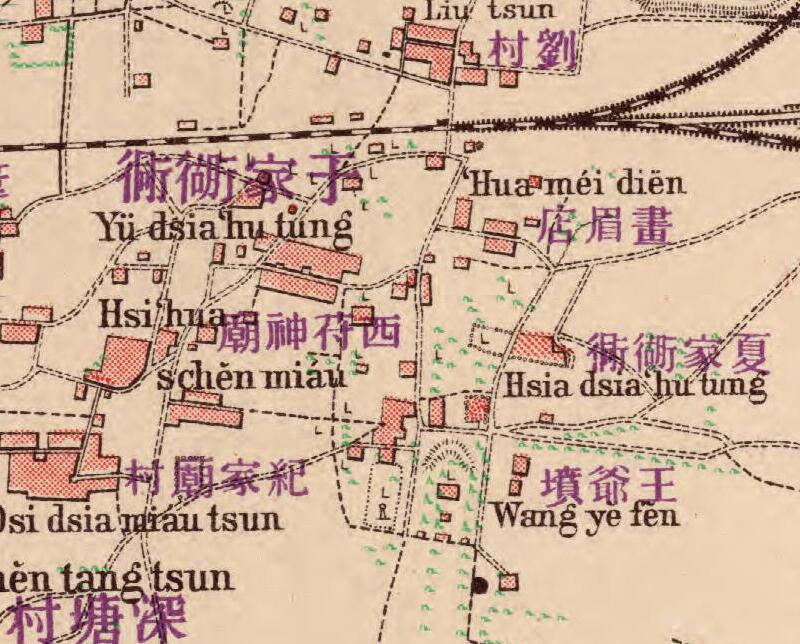 Liu tsun
劉村
于家衚衕
Yü dsia ʽhu tung
ʽHua méi diën
畫眉店
Hsi ʽhua
西苻神廟
schěn miau
夏家衚衕
Hsia dsia ʽhu tung
紀家廟村
Dsi dsia miau tsun
王爺墳
Wang ye fěn
hěn tang tsun
深塘村